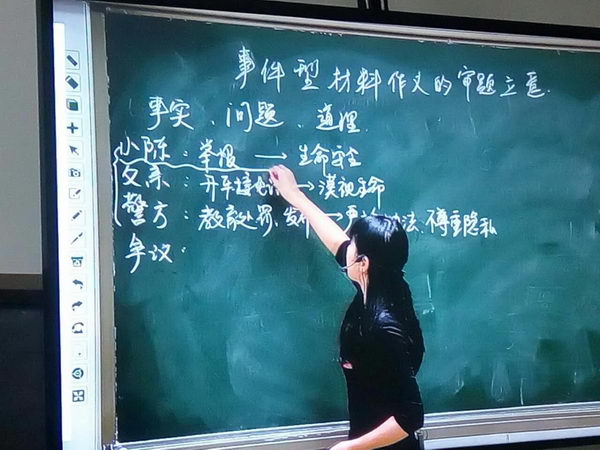 事件型材料作文的审题立意.
事实、问题、道理.
小陈：举报 → 生命安全
父亲：开车接电话 → 漠视生命
警方：教育处罚、发布 → 法、尊重隐私
争议：